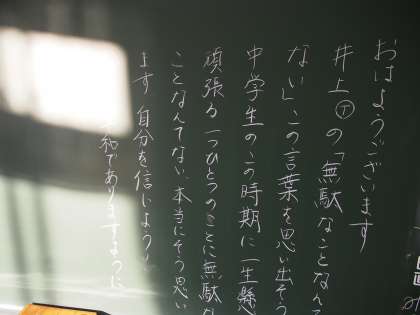 おはようございます
井上㋐の「無駄なことなんて
ない」この言葉を思い出そう
中学生のこの時期に一生懸
頑張る一つひとつのことに無駄な
ことなんてない、本当にそう思い
ます 自分を信じよう!
和でありますように